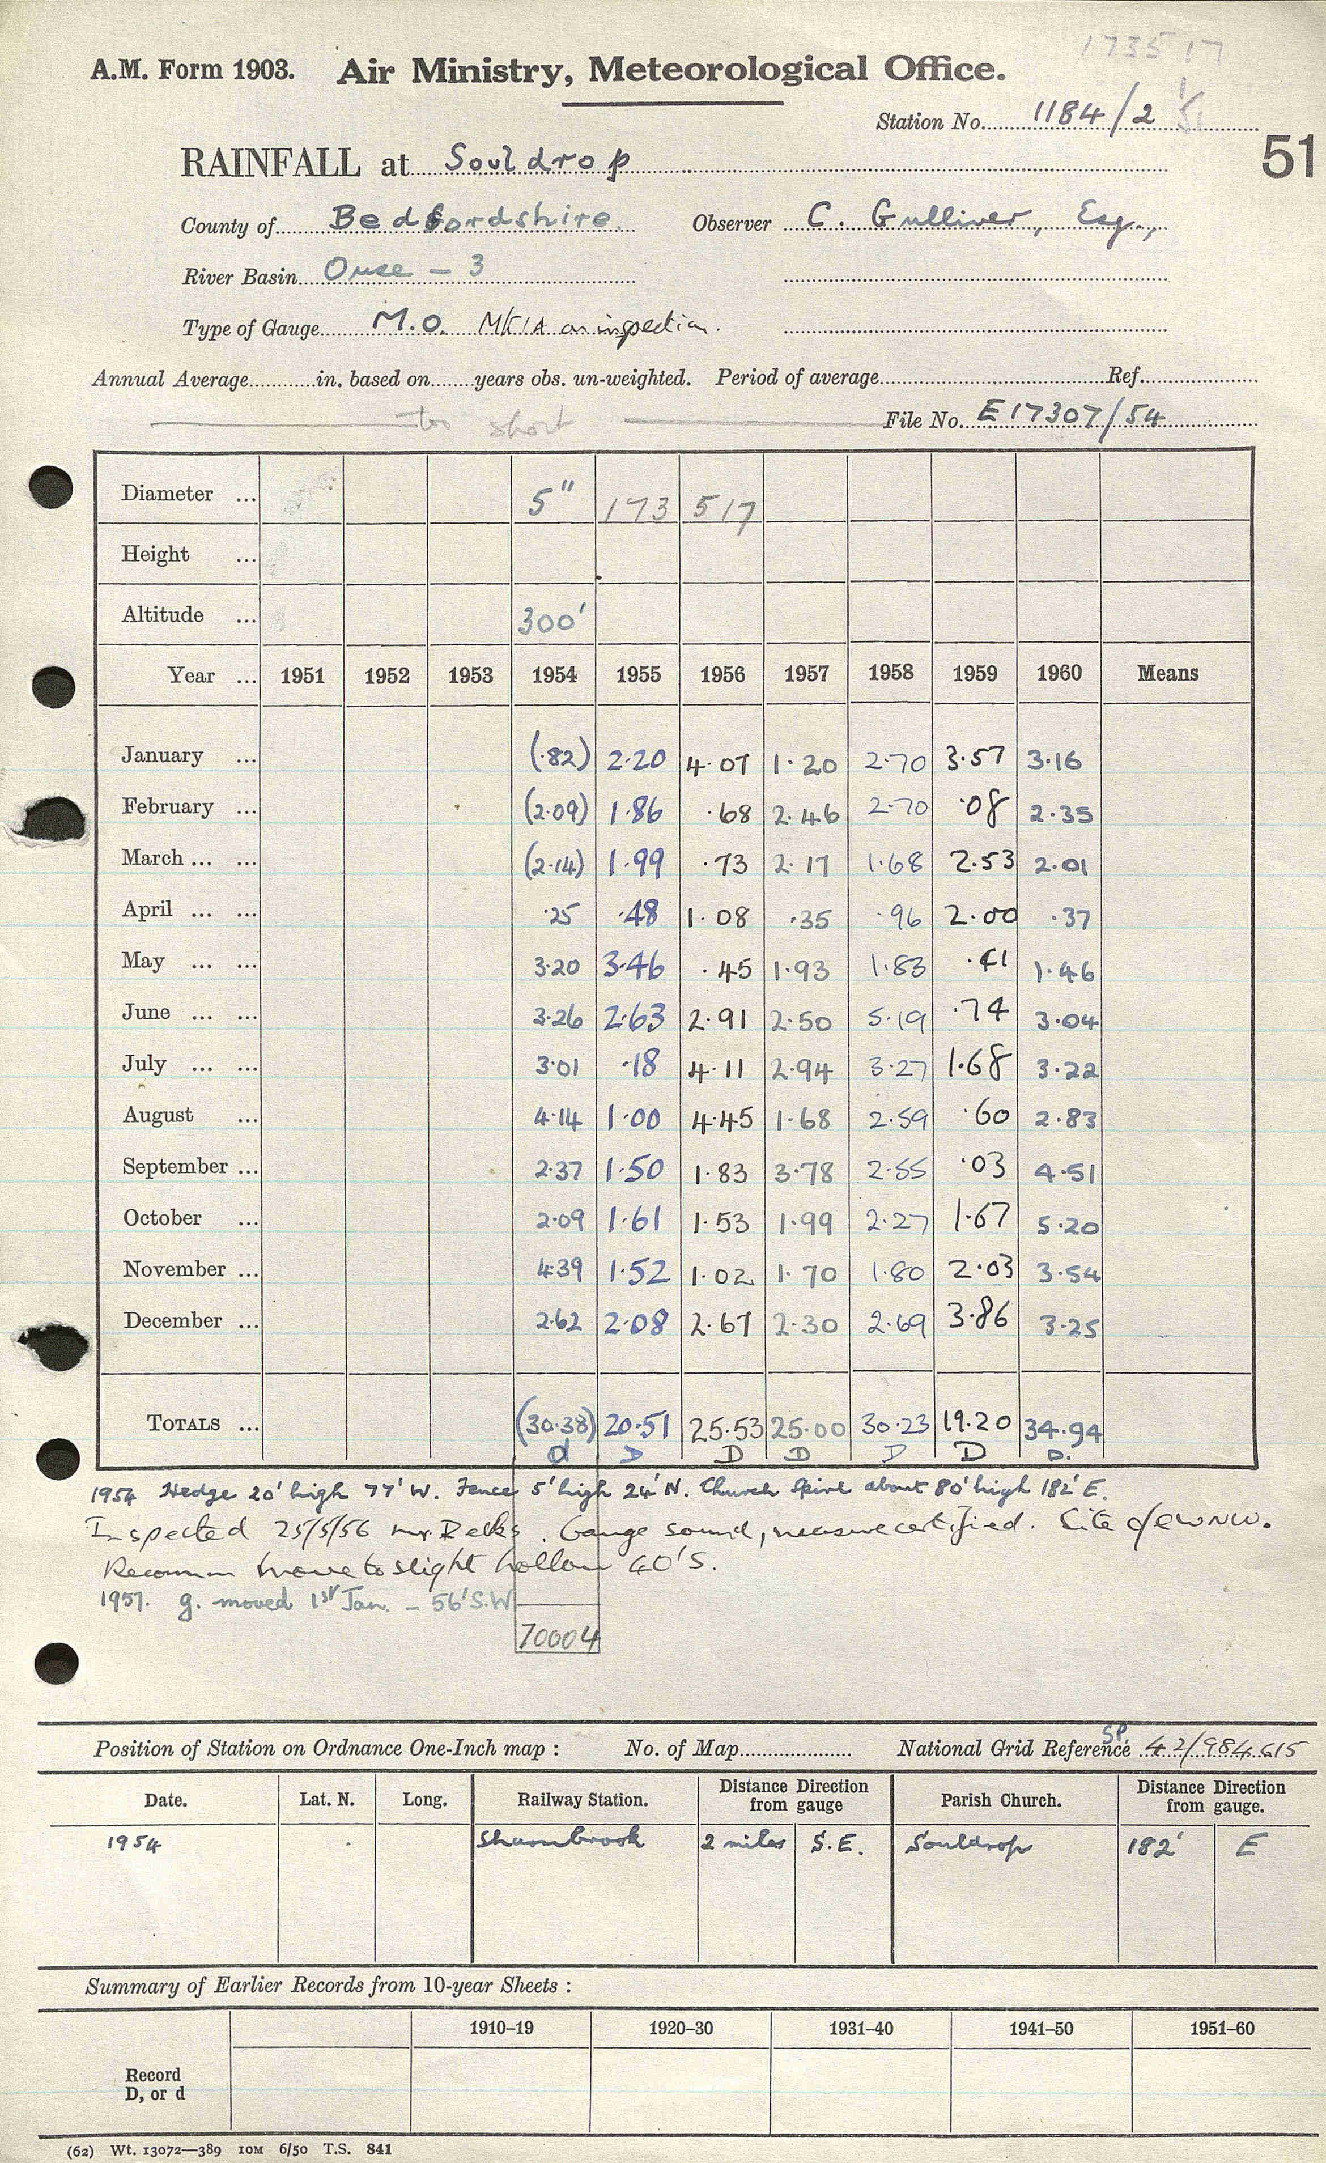 173517
A.M. Form 1903. Air Ministry, Meteorological Office.
Station No. 1184/2
51
RAINFALL at Souldrop
County of Bedfordshire. Observer C. Gulliver, Esq.,
River Basin Ouse - 3
Type of Gauge M.O. MK1A on inspection.
Annual Average in. based on years obs. un-weighted. Period of average Ref.
too short
File No. E17307/54
Diameter ... 5" 173 517
Height ...
Altitude ... 300'
Year ... 1951 1952 1953 1954 1955 1956 1957 1958 1959 1960 Means
January ... (.82) 2.20 4.07 1.20 2.70 3.57 3.16
February ... (2.09) 1.86 .68 2.46 2.70 .08 2.35
March ... ... (2.14) 1.99 .73 2.17 1.68 2.53 2.01
April ... ... .25 .48 1.08 .35 .96 2.00 .37
May ... ... 3.20 3.46 .45 1.93 1.83 .41 1.46
June ... ... 3.26 2.63 2.91 2.50 5.19 .74 3.04
July ... ... 3.01 .18 4.11 2.94 3.27 1.68 3.22
August ... 4.14 1.00 4.45 1.68 2.59 .60 2.83
September ... 2.37 1.50 1.83 3.78 2.55 .03 4.51
October ... 2.09 1.61 1.53 1.99 2.27 1.67 5.20
November ... 4.39 1.52 1.02 1.70 1.80 2.03 3.54
December ... 2.62 2.08 2.67 2.30 2.69 3.86 3.25
TOTALS ... (30.38) 20.51 25.53 25.00 30.23 19.20 34.94
d D D D D D D.
1954 Hedge 20' high 77' W. Fence 5' high 24' N. Church Spire about 80' high 182' E.
Inspected 25/5/56 Mr. Gauge sound, measure certified. Site o/e W NW.
Recomm move to slight hollow 40' S.
1957. g. moved 1st Jan. - 56' S.W.
70004
Position of Station on Ordnance One-Inch map : No. of Map National Grid Reference SP 42/984615
Date. Lat. N. Long. Railway Station. Distance Direction from gauge Parish Church. Distance Direction from gauge.
1954 Sharnbrook 2 miles S.E. Souldrop 182' E
Summary of Earlier Records from 10-year Sheets :
1910–19 1920–30 1931–40 1941–50 1951–60
Record
D, or d
(62) Wt. 13072—389 10M 6/50 T.S. 841